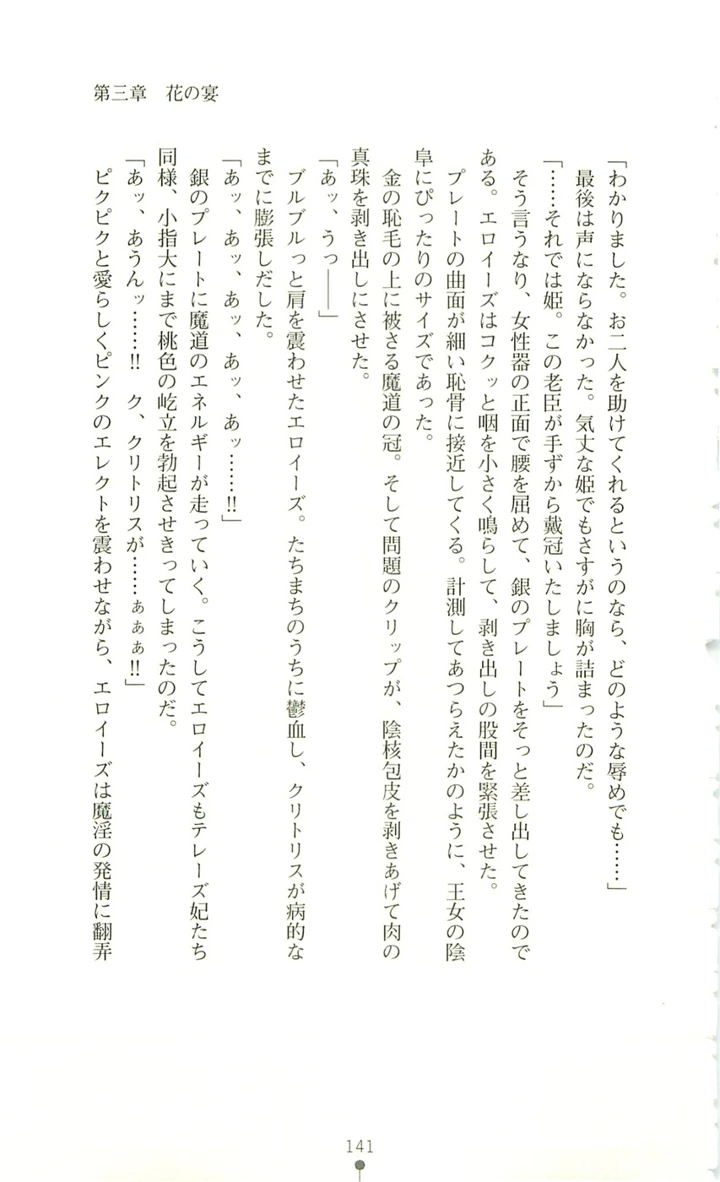 第三章 花の宴
「わかりました。お二人を助けてくれるというのなら、どのような辱めでも……」
最後は声にならなかった。気丈な姫でもさすがに胸が詰まったのだ。
「……それでは姫。この老臣が手ずから戴冠いたしましょう」
そう言うなり、女性器の正面で腰を屈めて、銀のプレートをそっと差し出してきたので
ある。エロイーズはコクッと咽を小さく鳴らして、剥き出しの股間を緊張させた。
プレートの曲面が細い恥骨に接近してくる。計測してあつらえたかのように、王女の陰
阜にぴったりのサイズであった。
金の恥毛の上に被さる魔道の冠。そして問題のクリップが、陰核包皮を剥きあげて肉の
真珠を剥き出しにさせた。
「あッ、うっ――」
ブルブルっと肩を震わせたエロイーズ。たちまちのうちに鬱血し、クリトリスが病的な
までに膨張しだした。
「あッ、あッ、あッ、あッ、あッ……!!」
銀のプレートに魔道のエネルギーが走っていく。こうしてエロイーズもテレーズ妃たち
同様、小指大にまで桃色の屹立を勃起させきってしまったのだ。
「あッ、あうんッ……!! ク、クリトリスが……ぁぁぁ!!」
ピクピクと愛らしくピンクのエレクトを震わせながら、エロイーズは魔淫の発情に翻弄
141